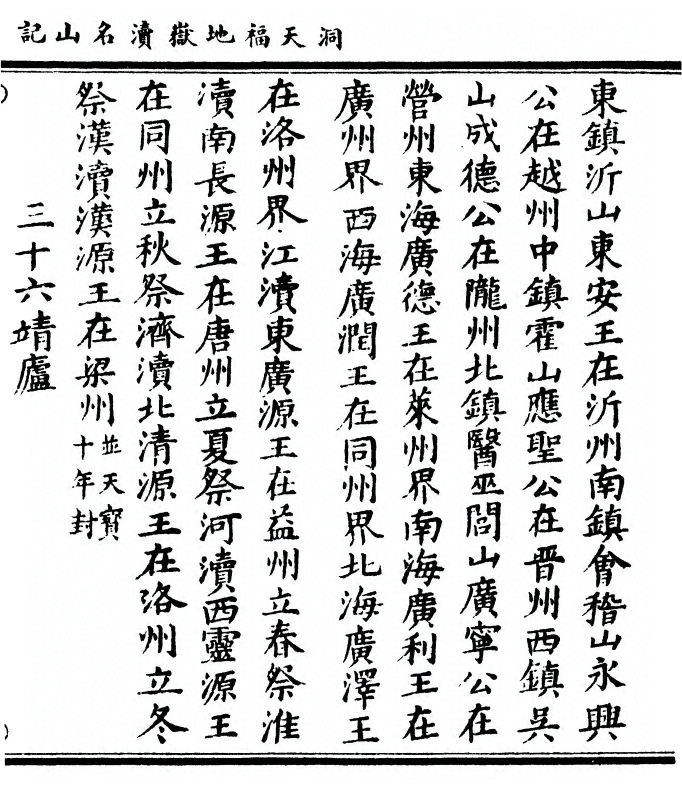 洞天福地嶽瀆名山記
東鎮沂山東安王在沂州南鎮會稽山永興
公在越州中鎮霍山應聖公在晉州西鎮吳
山成德公在隴州北鎮醫巫閭山廣寧公在
營州東海廣德王在萊州界南海廣利王在
廣州界西海廣潤王在同州界北海廣澤王
在洛州界江瀆東廣源王在益州立春祭淮
瀆南長源王在唐州立夏祭河瀆西靈源王
在同州立秋祭濟瀆北清源王在洛州立冬
祭漢瀆漢源王在梁州並天寶十年封
三十六靖廬